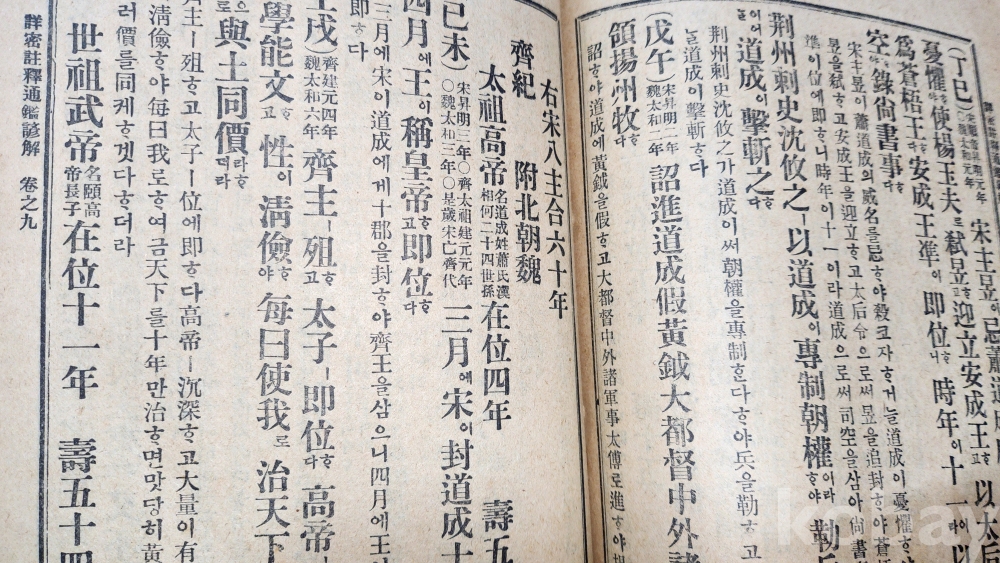 (丁巳)
宋主昱이忌蕭道
憂懼하야使楊玉夫로弑昱하고迎立安成王하고以太后
爲蒼梧王다安成王準이即位하니時年이十一이라以
空錄尙書事다
宋主昱이蕭道成의威名을忌하야殺코자하거늘道成이憂懼하야
昱을弑하고安成王을迎立하고太后令으로써昱을追封하야蒼梧
準이位에即하니時年이十一이라道成으로써司空을삼아尙書
荊州刺史沈攸之ㅣ以道成이專制朝權이라하야勒兵
어늘道成이擊斬之다
荊州刺史沈攸之가道成이써朝權을專制한다하야兵을勒하고
늘道成이擊斬하다
(戊午)
宋昇明二年○
魏太和二年
詔進道成假黃鉞大都督中外諸
領揚州牧다
詔하야道成에黃鉞을假하고大都督中外諸軍事太傅로進하야揚
右宋八主合六十年
齊紀 附北朝魏
太祖高帝
名道成姓蕭氏漢
相何二十四世孫
在位四年 壽五
己未)
宋昇明三年○齊太祖建元元年
○魏太和三年○是歲宋亡齊代
三月에宋이封道成十
四月에王이稱皇帝하고即位하다
三月에宋이道成에게十郡을封하야齊王을삼으니四月에王이
即하다
壬戌)
齊建元四年
魏太和六年
齊主ㅣ殂하고太子ㅣ即位다高帝ㅣ
學能文고性이淸儉하야每曰使我로治天下
로與土同價케리라더라
齊主ㅣ殂하고太子ㅣ位에即하다高帝ㅣ沉深하고大量이有
淸儉하야每曰我로하여금天下를十年만治하면맛당히黃
러價를同케하겟다하더라
世祖武帝
名賾高
帝長子
在位十一年 壽五十四
詳密註釋通鑑諺解 卷之九